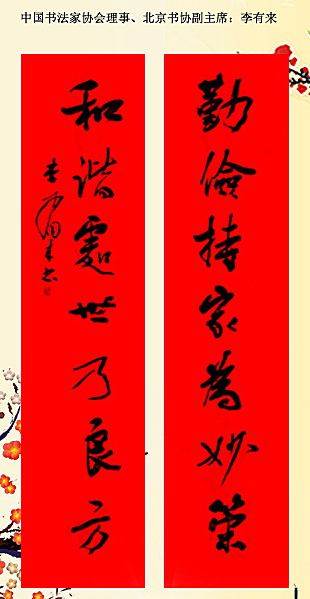 中国书法家协会理事、北京书协副主席：李有来
勤儉持家為妙策
和諧處世乃良方
李有来书